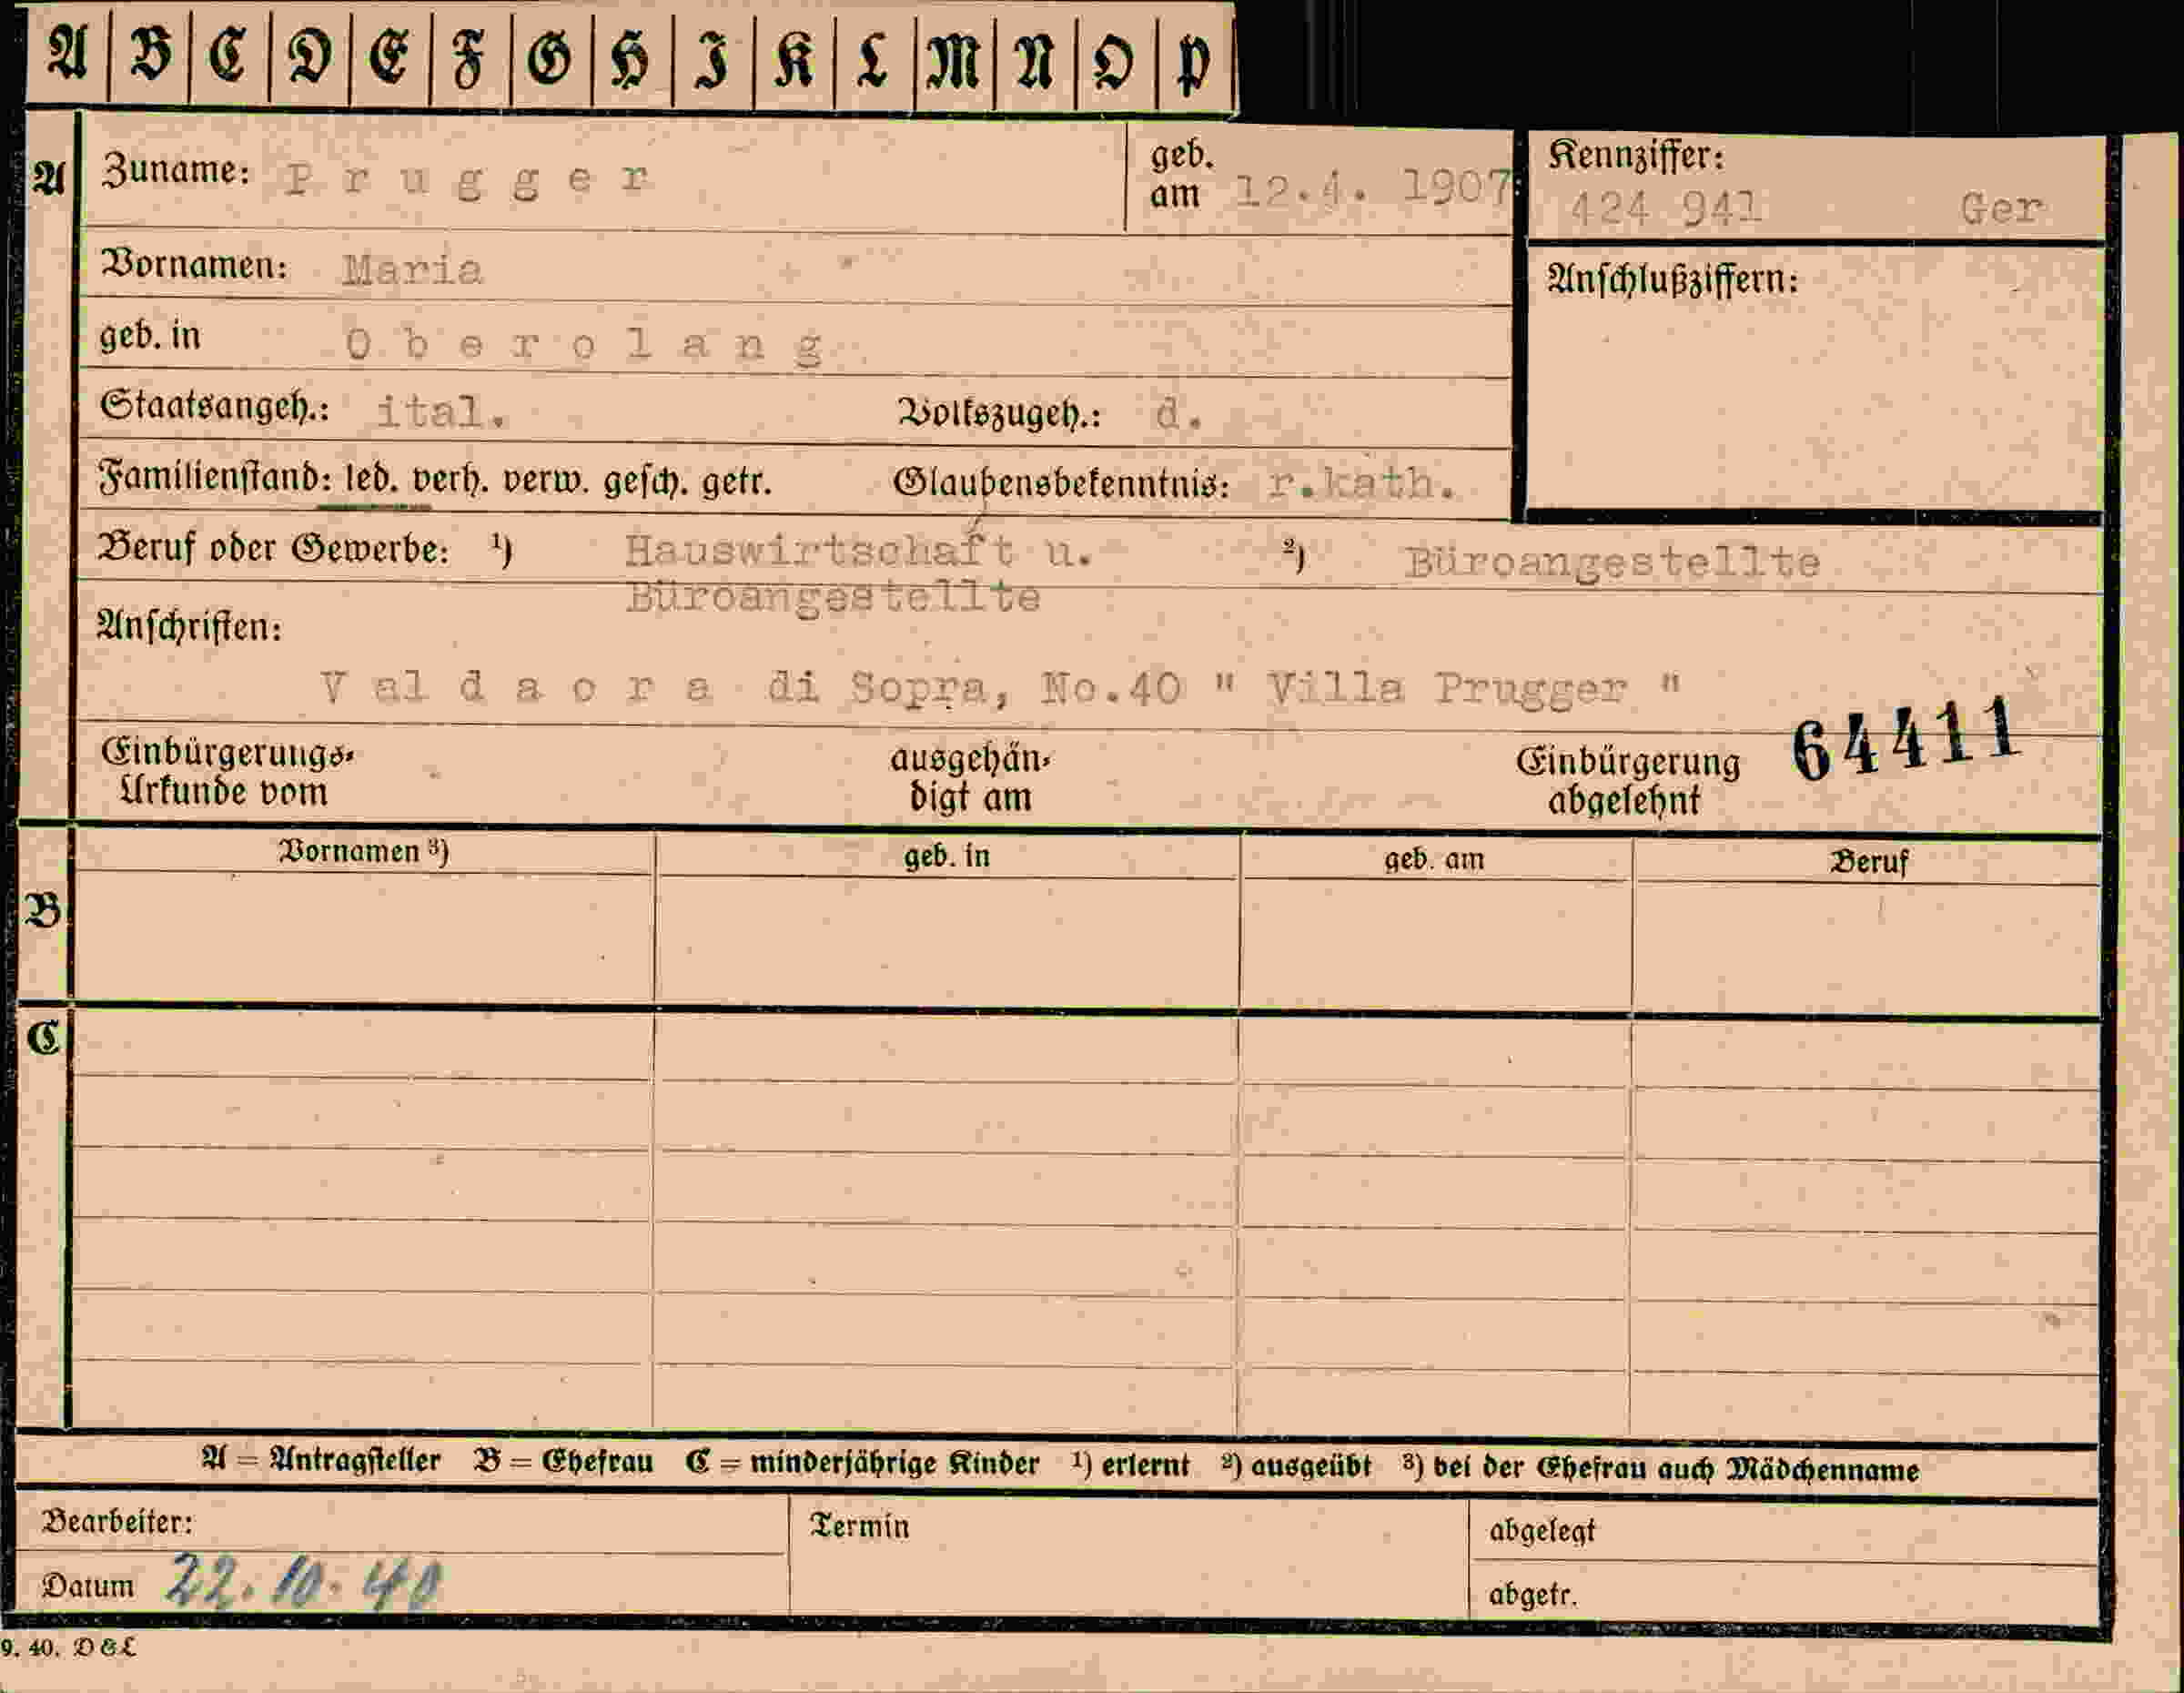 A B C D E F G H I K L M N O P
A Zuname: Prugger geb. am 12.4. 1907 Kennziffer: 424 941 Ger
Vornamen: Maria Anschlußziffern:
geb. in Oberolang
Staatsangeh.: ital. Volkszugeh.: d.
Familienstand: led. verh. verw. gesch. getr. Glaubensbekenntnis: r.kath.
Beruf oder Gewerbe: ¹) Hauswirtschaft u. ²) Büroangestellte
Büroangestellte
Anschriften:
Valdaora di Sopra, No.40 " Villa Prugger "
64411
Einbürgerungs- ausgehän- Einbürgerung
Urkunde vom digt am abgelehnt
Vornamen ³) geb. in geb. am Beruf
B
C
A = Antragsteller B = Ehefrau C = minderjährige Kinder ¹) erlernt ²) ausgeübt ³) bei der Ehefrau auch Mädchenname
Bearbeiter: Termin abgelegt
Datum 22.10.40 abgetr.
9. 40. D & L